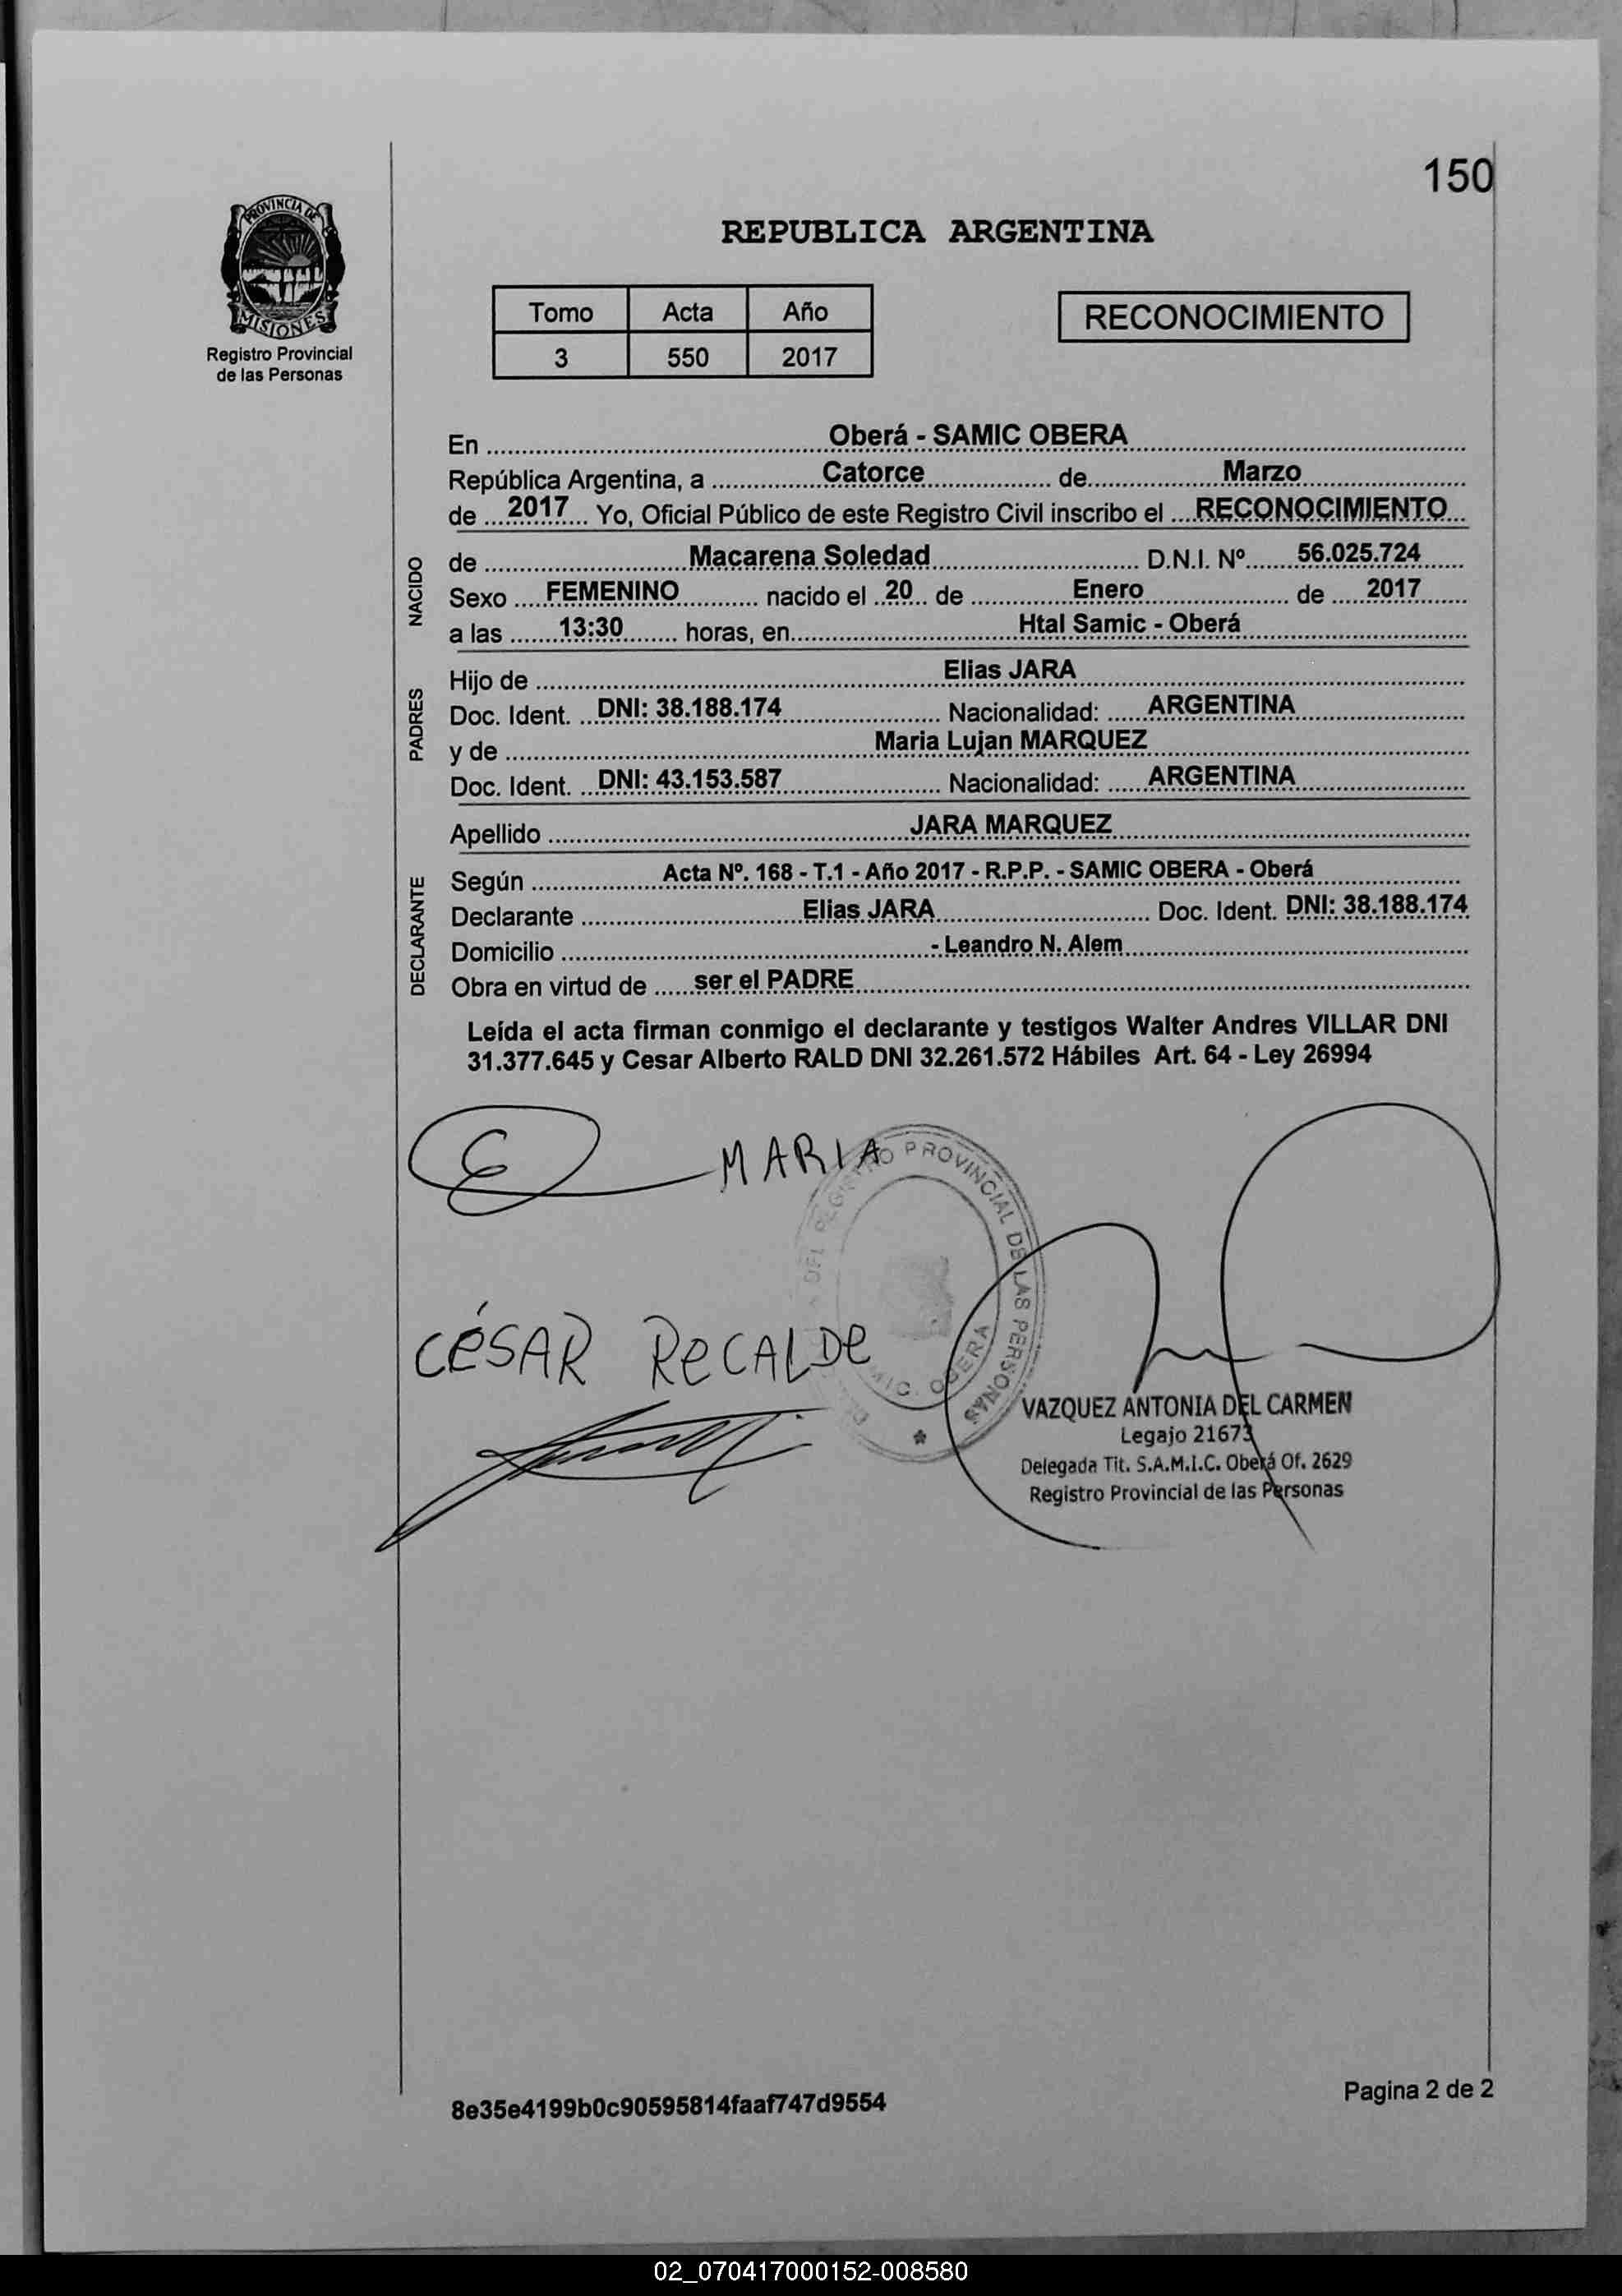 150
PROVINCIA DE
MISIONES
Registro Provincial
de las Personas
REPUBLICA ARGENTINA
Tomo Acta Año
3 550 2017
RECONOCIMIENTO
En Oberá - SAMIC OBERA
República Argentina, a Catorce de Marzo
de 2017 Yo, Oficial Público de este Registro Civil inscribo el RECONOCIMIENTO
NACIDO
de Macarena Soledad D.N.I. Nº 56.025.724
Sexo FEMENINO nacido el 20 de Enero de 2017
a las 13:30 horas, en Htal Samic - Oberá
PADRES
Hijo de Elias JARA
Doc. Ident. DNI: 38.188.174 Nacionalidad: ARGENTINA
y de Maria Lujan MARQUEZ
Doc. Ident. DNI: 43.153.587 Nacionalidad: ARGENTINA
Apellido JARA MARQUEZ
DECLARANTE
Según Acta Nº. 168 - T.1 - Año 2017 - R.P.P. - SAMIC OBERA - Oberá
Declarante Elias JARA Doc. Ident. DNI: 38.188.174
Domicilio - Leandro N. Alem
Obra en virtud de ser el PADRE
Leída el acta firman conmigo el declarante y testigos Walter Andres VILLAR DNI
31.377.645 y Cesar Alberto RALD DNI 32.261.572 Hábiles Art. 64 - Ley 26994
MARIA
DEL REGISTRO PROVINCIAL DE LAS PERSONAS
OBERA
CÉSAR RECALDE
VAZQUEZ ANTONIA DEL CARMEN
Legajo 21673
Delegada Tit. S.A.M.I.C. Oberá Of. 2629
Registro Provincial de las Personas
8e35e4199b0c90595814faaf747d9554
Pagina 2 de 2
02_070417000152-008580